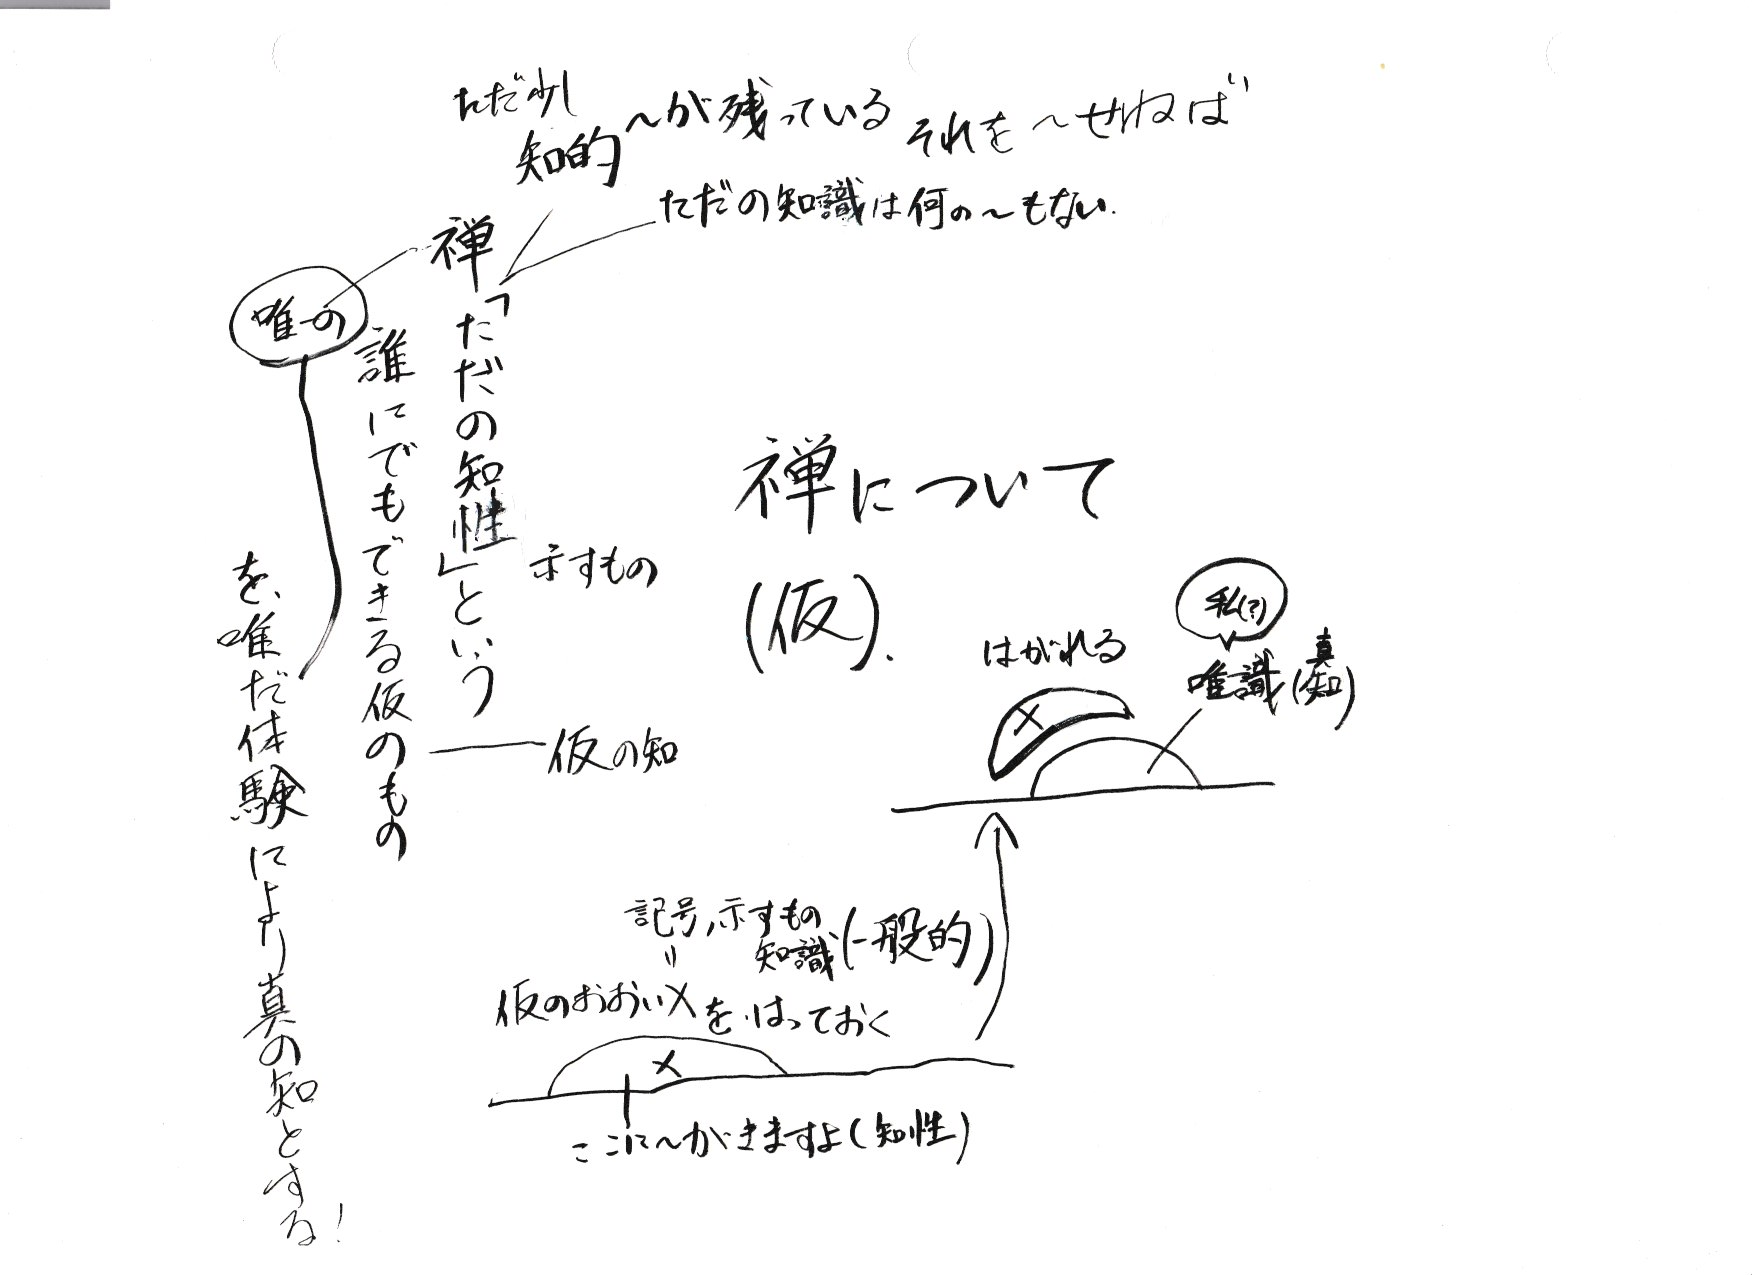 ただ少し
知的〜が残っている それを〜せねば
ただの知識は何の〜もない.
禅「ただの知性」という
示すもの
誰にでもできる仮のもの
仮の知
唯一の
を、唯だ体験により真の知とする!
禅について
(仮).
私(?)
はがれる
唯識(真知)
X
記号,示すもの
知識(一般的)
=
仮のおおいXをはっておく
X
ここに〜がきますよ(知性)